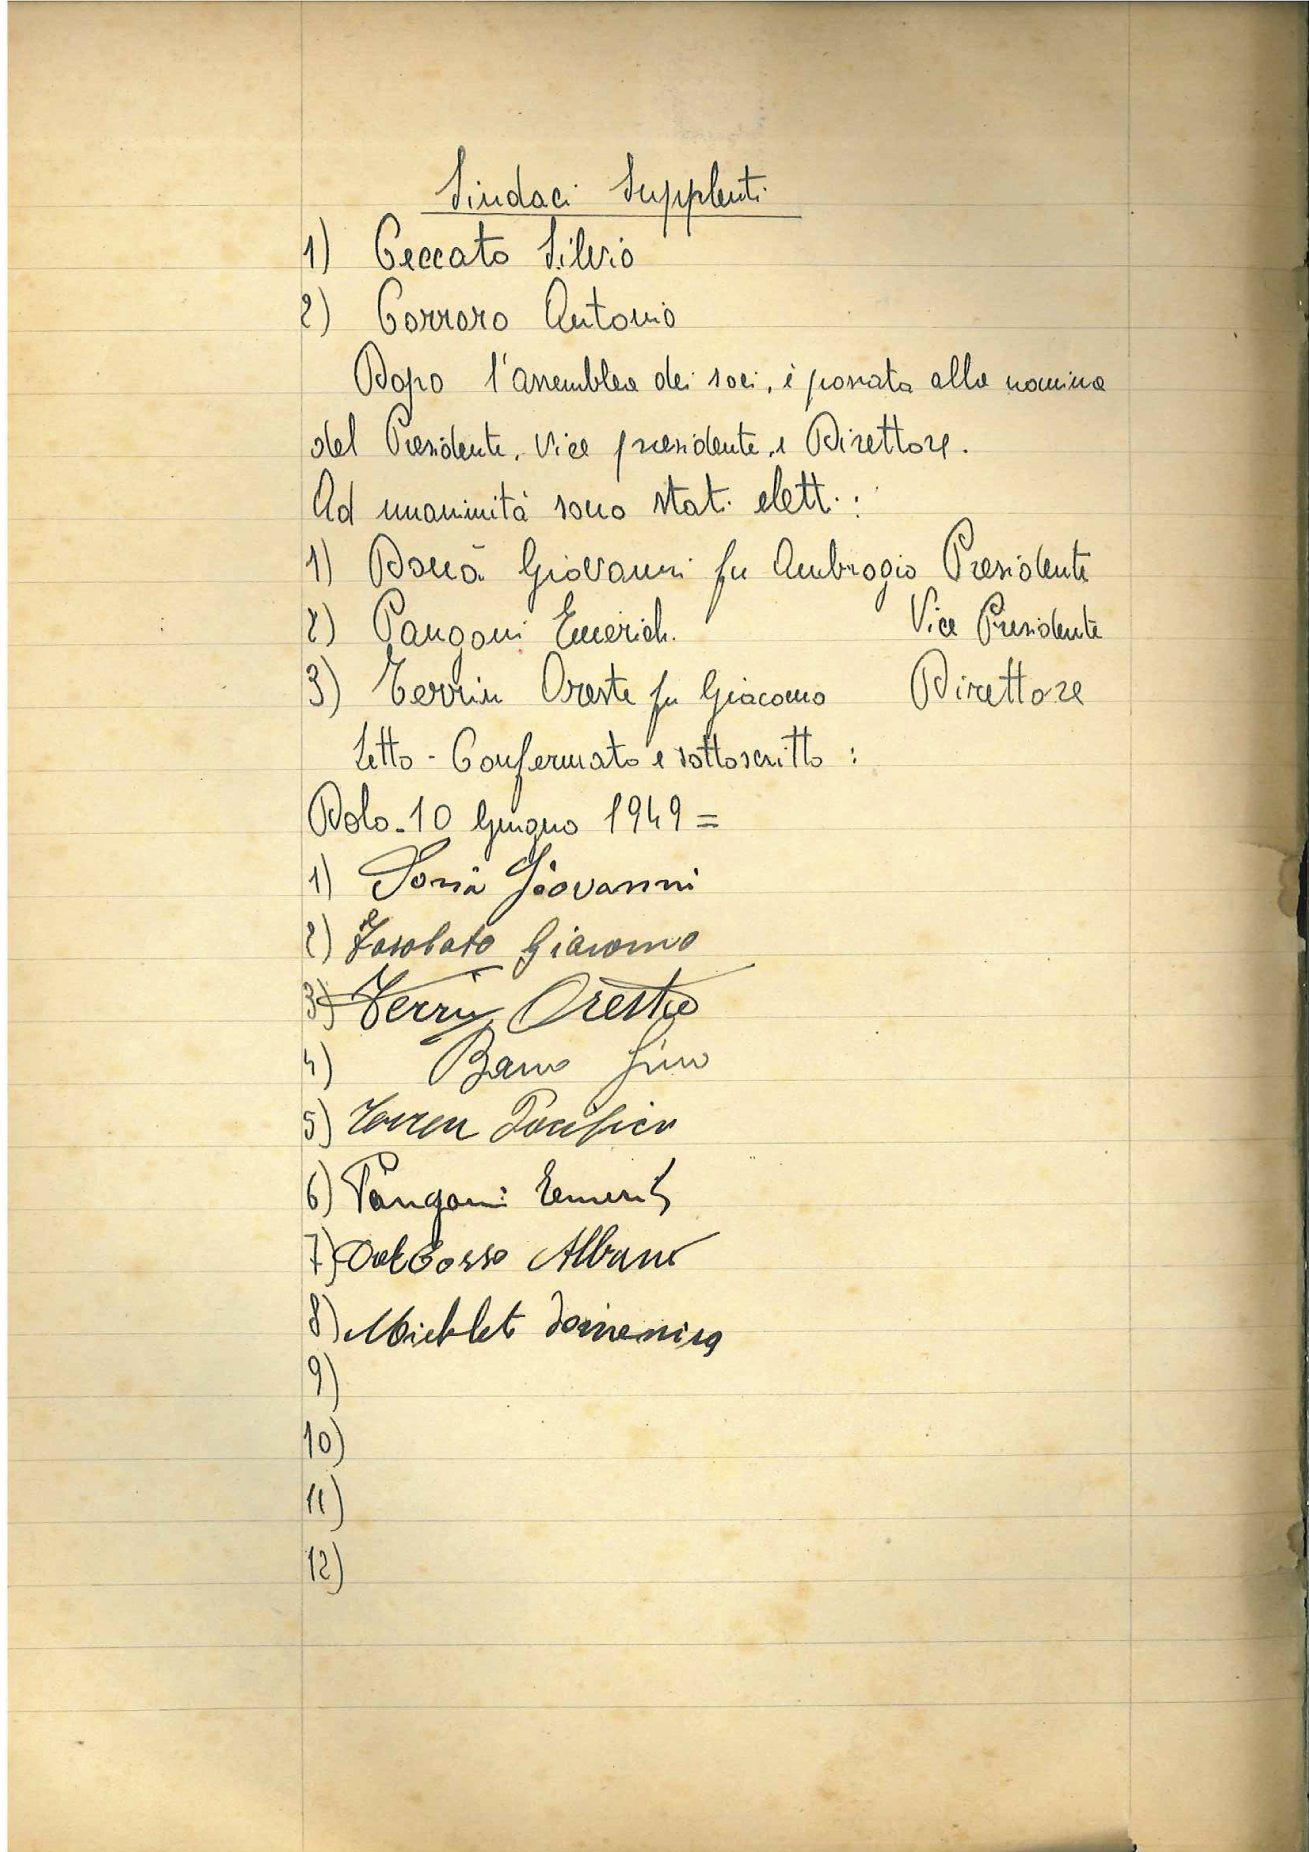 Sindaci Supplenti
1) Ceccato Silvio
2) Corraro Antonio
Dopo l'assemblea dei soci, è passata alla nomina
del Presidente, Vice presidente, e Direttore.
Ad unanimità sono stati eletti:
1) Donà Giovanni fu Ambrogio Presidente
2) Pangoni Emerich. Vice Presidente
3) Terrin Oreste fu Giacomo Direttore
Letto - Confermato e sottoscritto:
Dolo - 10 Giugno 1949 =
1) Donà Giovanni
2) Giacomo
3) Terrin Oreste
4) Gino
5) Pacifico
6) Pangoni Emerich
7) Dal Corso Albano
8) Domenico
9)
10)
11)
12)